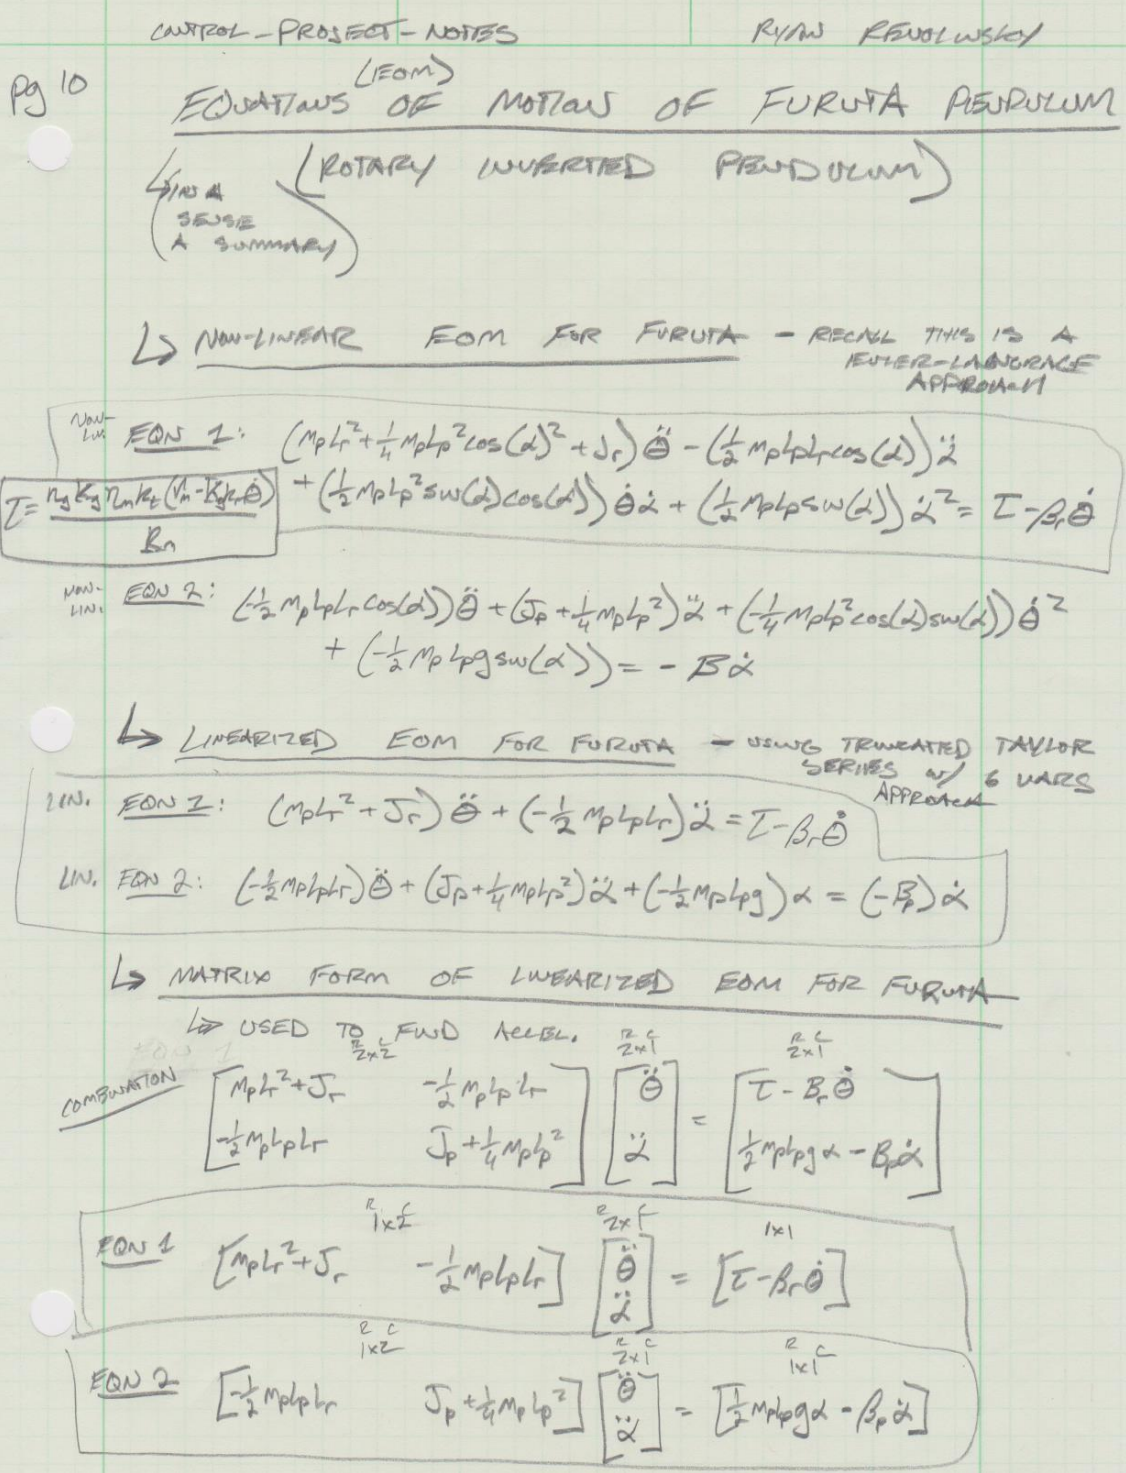 CONTROL-PROJECT-NOTES RYAN REVOLINSKY
pg 10
(EOM)
EQUATIONS OF MOTION OF FURUTA PENDULUM
(ROTARY INVERTED PENDULUM)
(IN A
SENSE
A SUMMARY)
↳ NON-LINEAR EOM FOR FURUTA - RECALL THIS IS A
EULER-LANGRAGE
APPROACH
NON-LIN. EQN 1: (MpLr² + 1/4 MpLp² cos(α)² + Jr) θ̈ - (1/2 MpLpLr cos(α)) α̈
+ (1/2 MpLp² sin(α) cos(α)) θ̇ α̇ + (1/2 MpLp sin(α)) α̇² = τ - βr θ̇
τ = ηg Kg ηm kt (Vm - Kg km θ̇) / Rm
NON-LIN. EQN 2: (-1/2 MpLpLr cos(α)) θ̈ + (Jp + 1/4 MpLp²) α̈ + (-1/4 MpLp² cos(α) sin(α)) θ̇²
+ (-1/2 MpLp g sin(α)) = - B α̇
↳ LINEARIZED EOM FOR FURUTA - USING TRUNCATED TAYLOR
SERIES w/ 6 VARS
APPROACH
LIN. EQN 1: (MpLr² + Jr) θ̈ + (-1/2 MpLpLr) α̈ = τ - βr θ̇
LIN. EQN 2: (-1/2 MpLpLr) θ̈ + (Jp + 1/4 MpLp²) α̈ + (-1/2 MpLp g) α = (-Bp) α̇
↳ MATRIX FORM OF LINEARIZED EOM FOR FURUTA
↳ USED TO FIND ACCEL.
R C 2x2 R C 2x1 R C 2x1
COMBINATION [MpLr² + Jr -1/2 MpLpLr] [θ̈] = [τ - Br θ̇]
[-1/2 MpLpLr Jp + 1/4 MpLp²] [α̈] [1/2 MpLp g α - Bp α̇]
R C 1x2 R C 2x1 1x1
EQN 1 [MpLr² + Jr -1/2 MpLpLr] [θ̈ α̈] = [τ - βr θ̇]
R C 1x2 R C 2x1 R C 1x1
EQN 2 [-1/2 MpLpLr Jp + 1/4 MpLp²] [θ̈ α̈] = [1/2 MpLp g α - βp α̇]